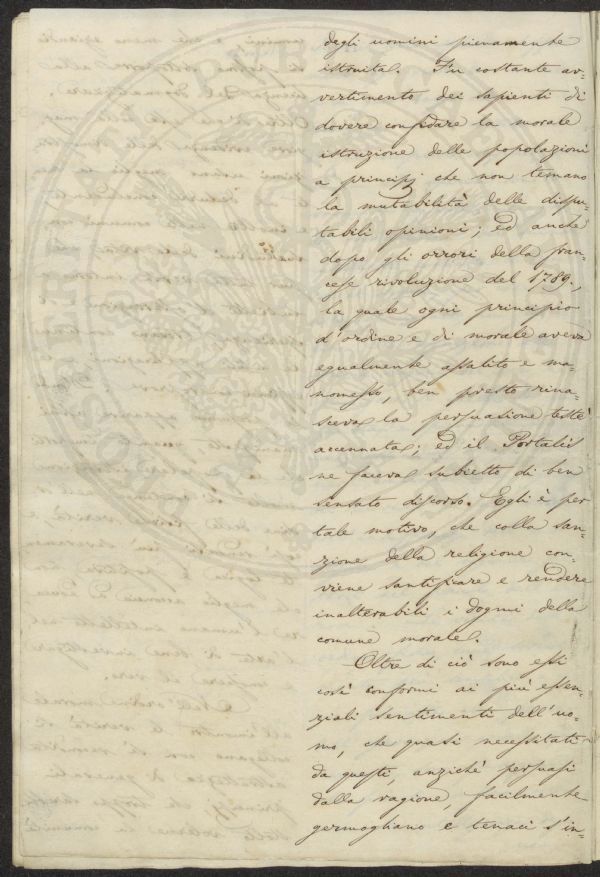 degli uomini pienamente
istruita. Fu costante av-
vertimento dei sapienti di
dovere confidare la morale
istruzione delle popolazioni
a principj che non temano
la mutabilità delle dispu-
tabili opinioni; ed anche
dopo gli orrori della fran-
cese rivoluzione del 1789.,
la quale ogni principio
d'ordine e di morale aveva
egualmente assalito e ma-
nomesso, ben presto rina-
sceva la persuasione testè
accennata; ed il Portalis
ne faceva subietto di ben
sensato discorso. Egli è per
tale motivo, che colla san-
zione della religione con-
viene santificare e rendere
inalterabili i dogmi della
comune morale.
Oltre di ciò sono essi
così conformi ai più essen-
ziali sentimenti dell'uo-
mo, che quasi necessitati
da questi, anzichè persuasi
dalla ragione, facilmente
germogliano e tenaci s'in-